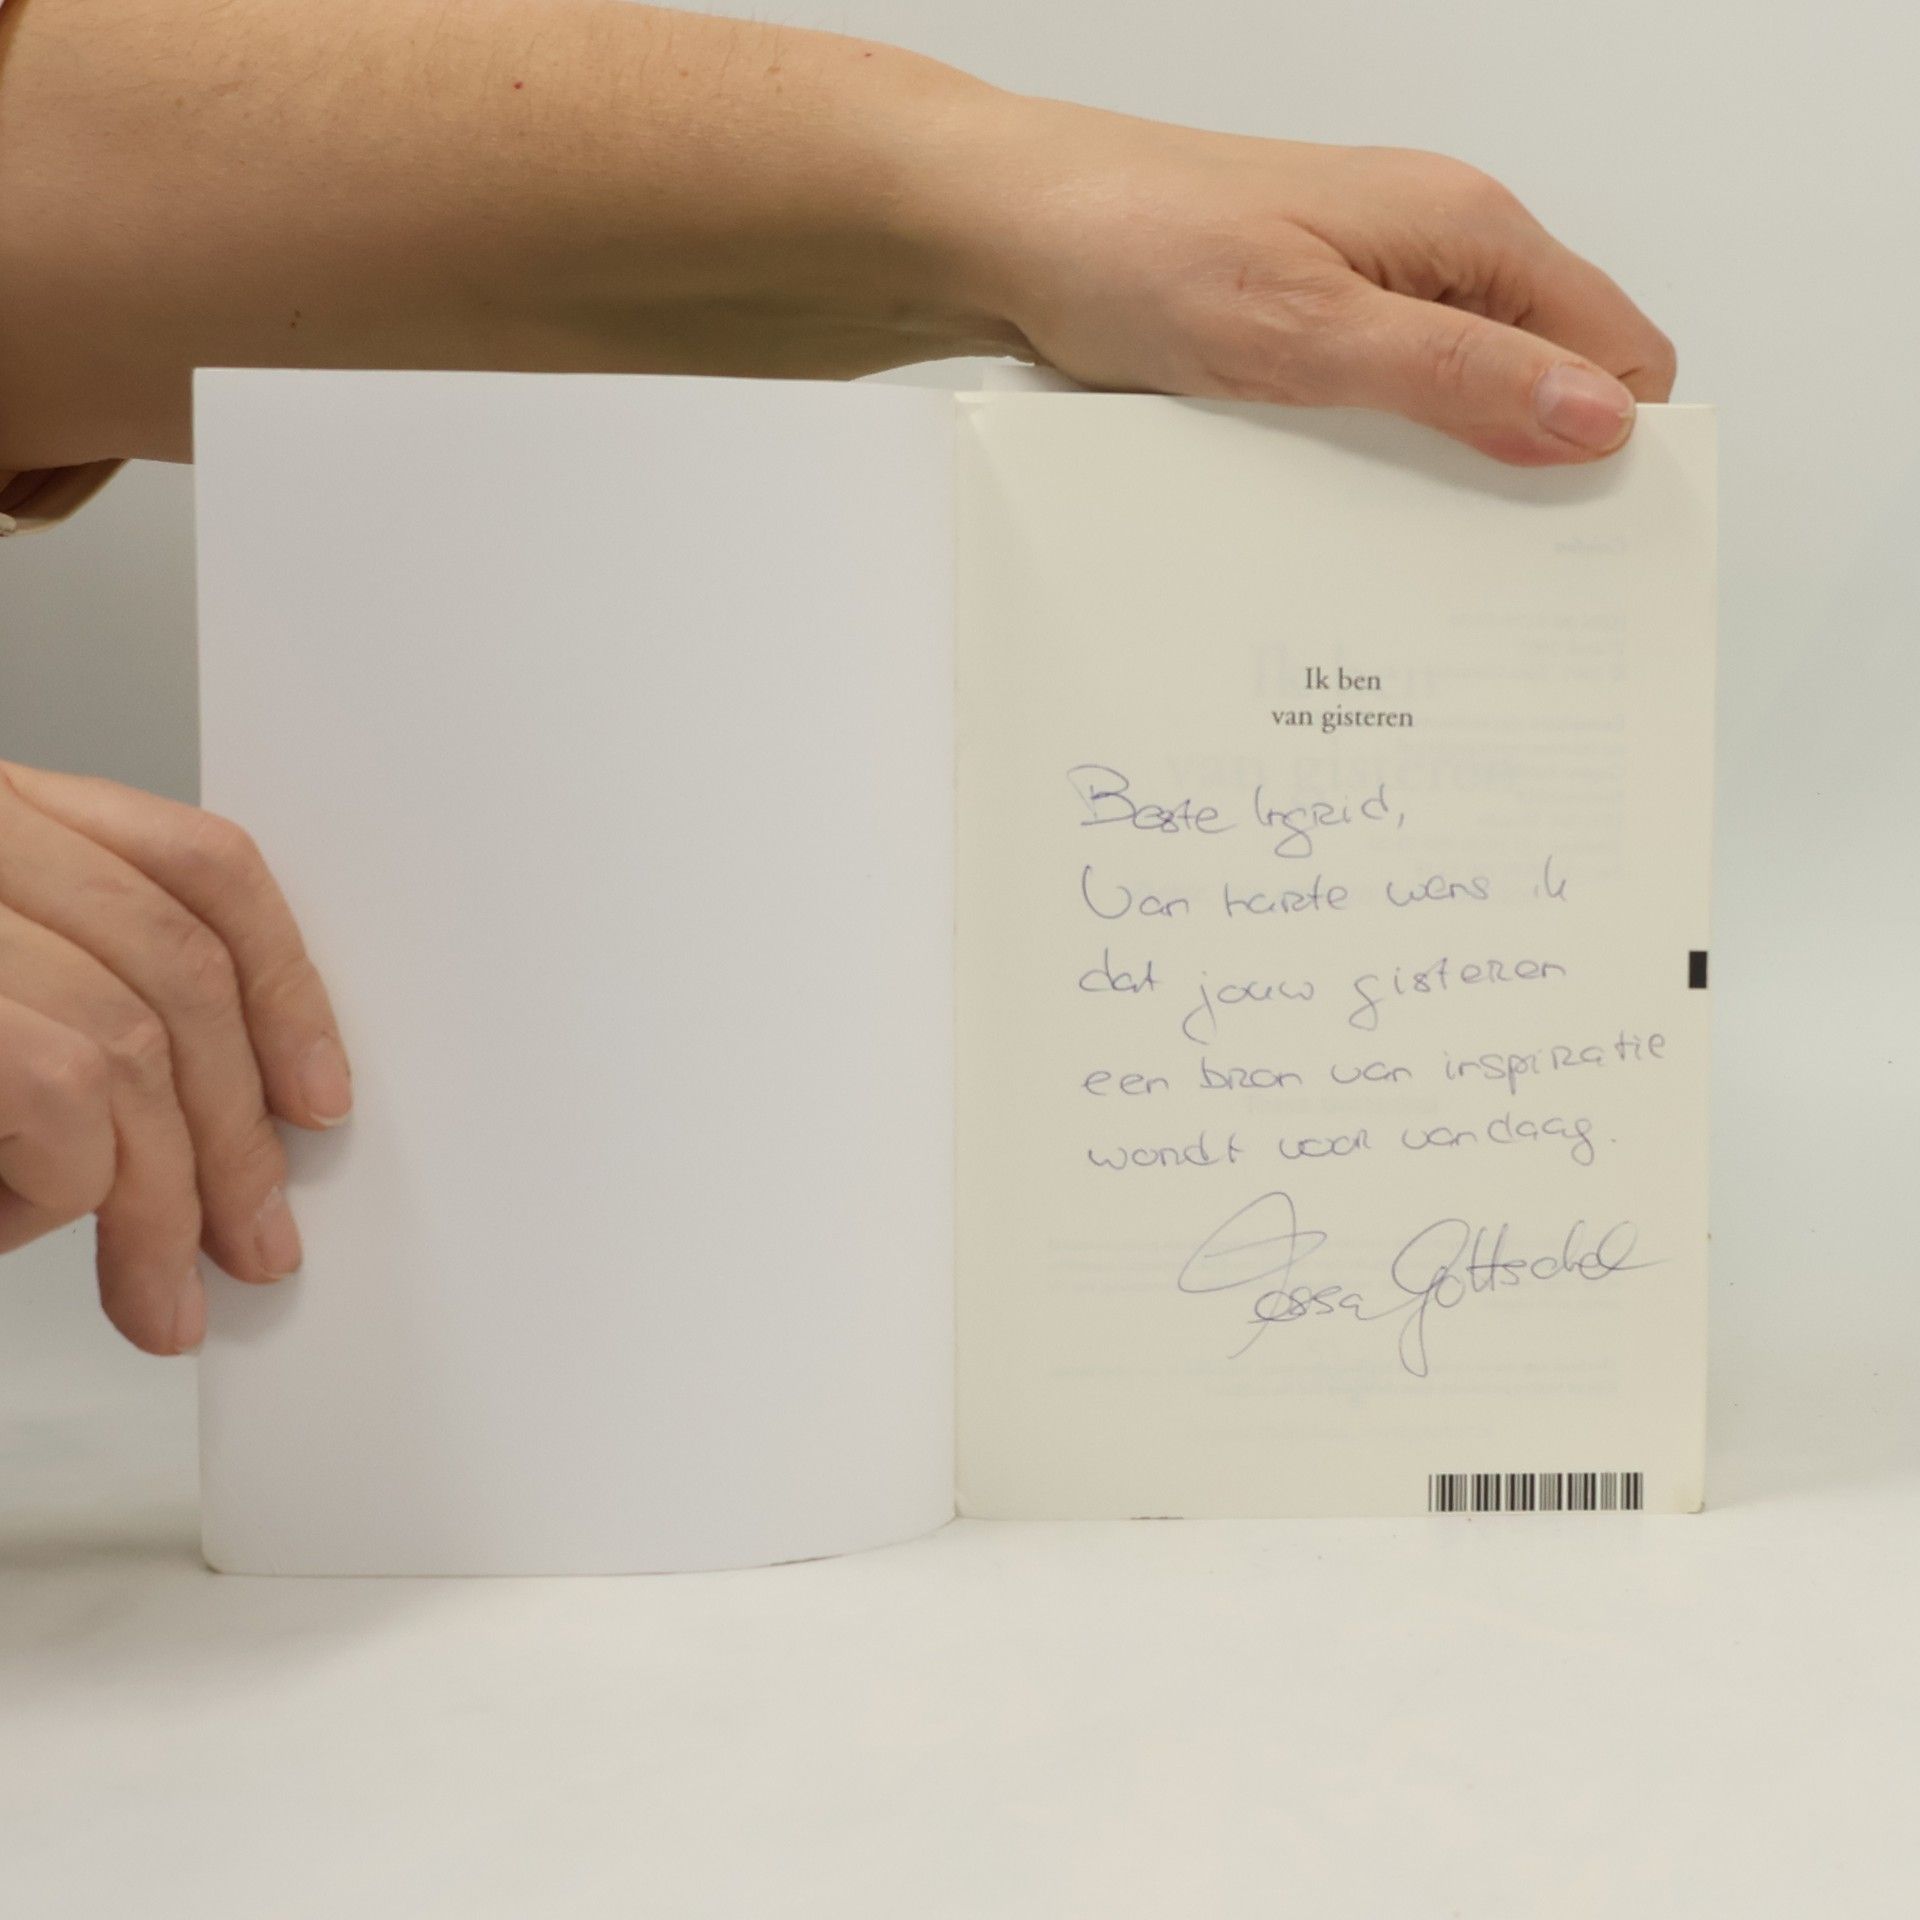 Ik ben
van gisteren
Beste Ingrid,
Van harte wens ik
dat jouw gisteren
een bron van inspiratie
wordt voor vandaag.
Tessa Gottschal